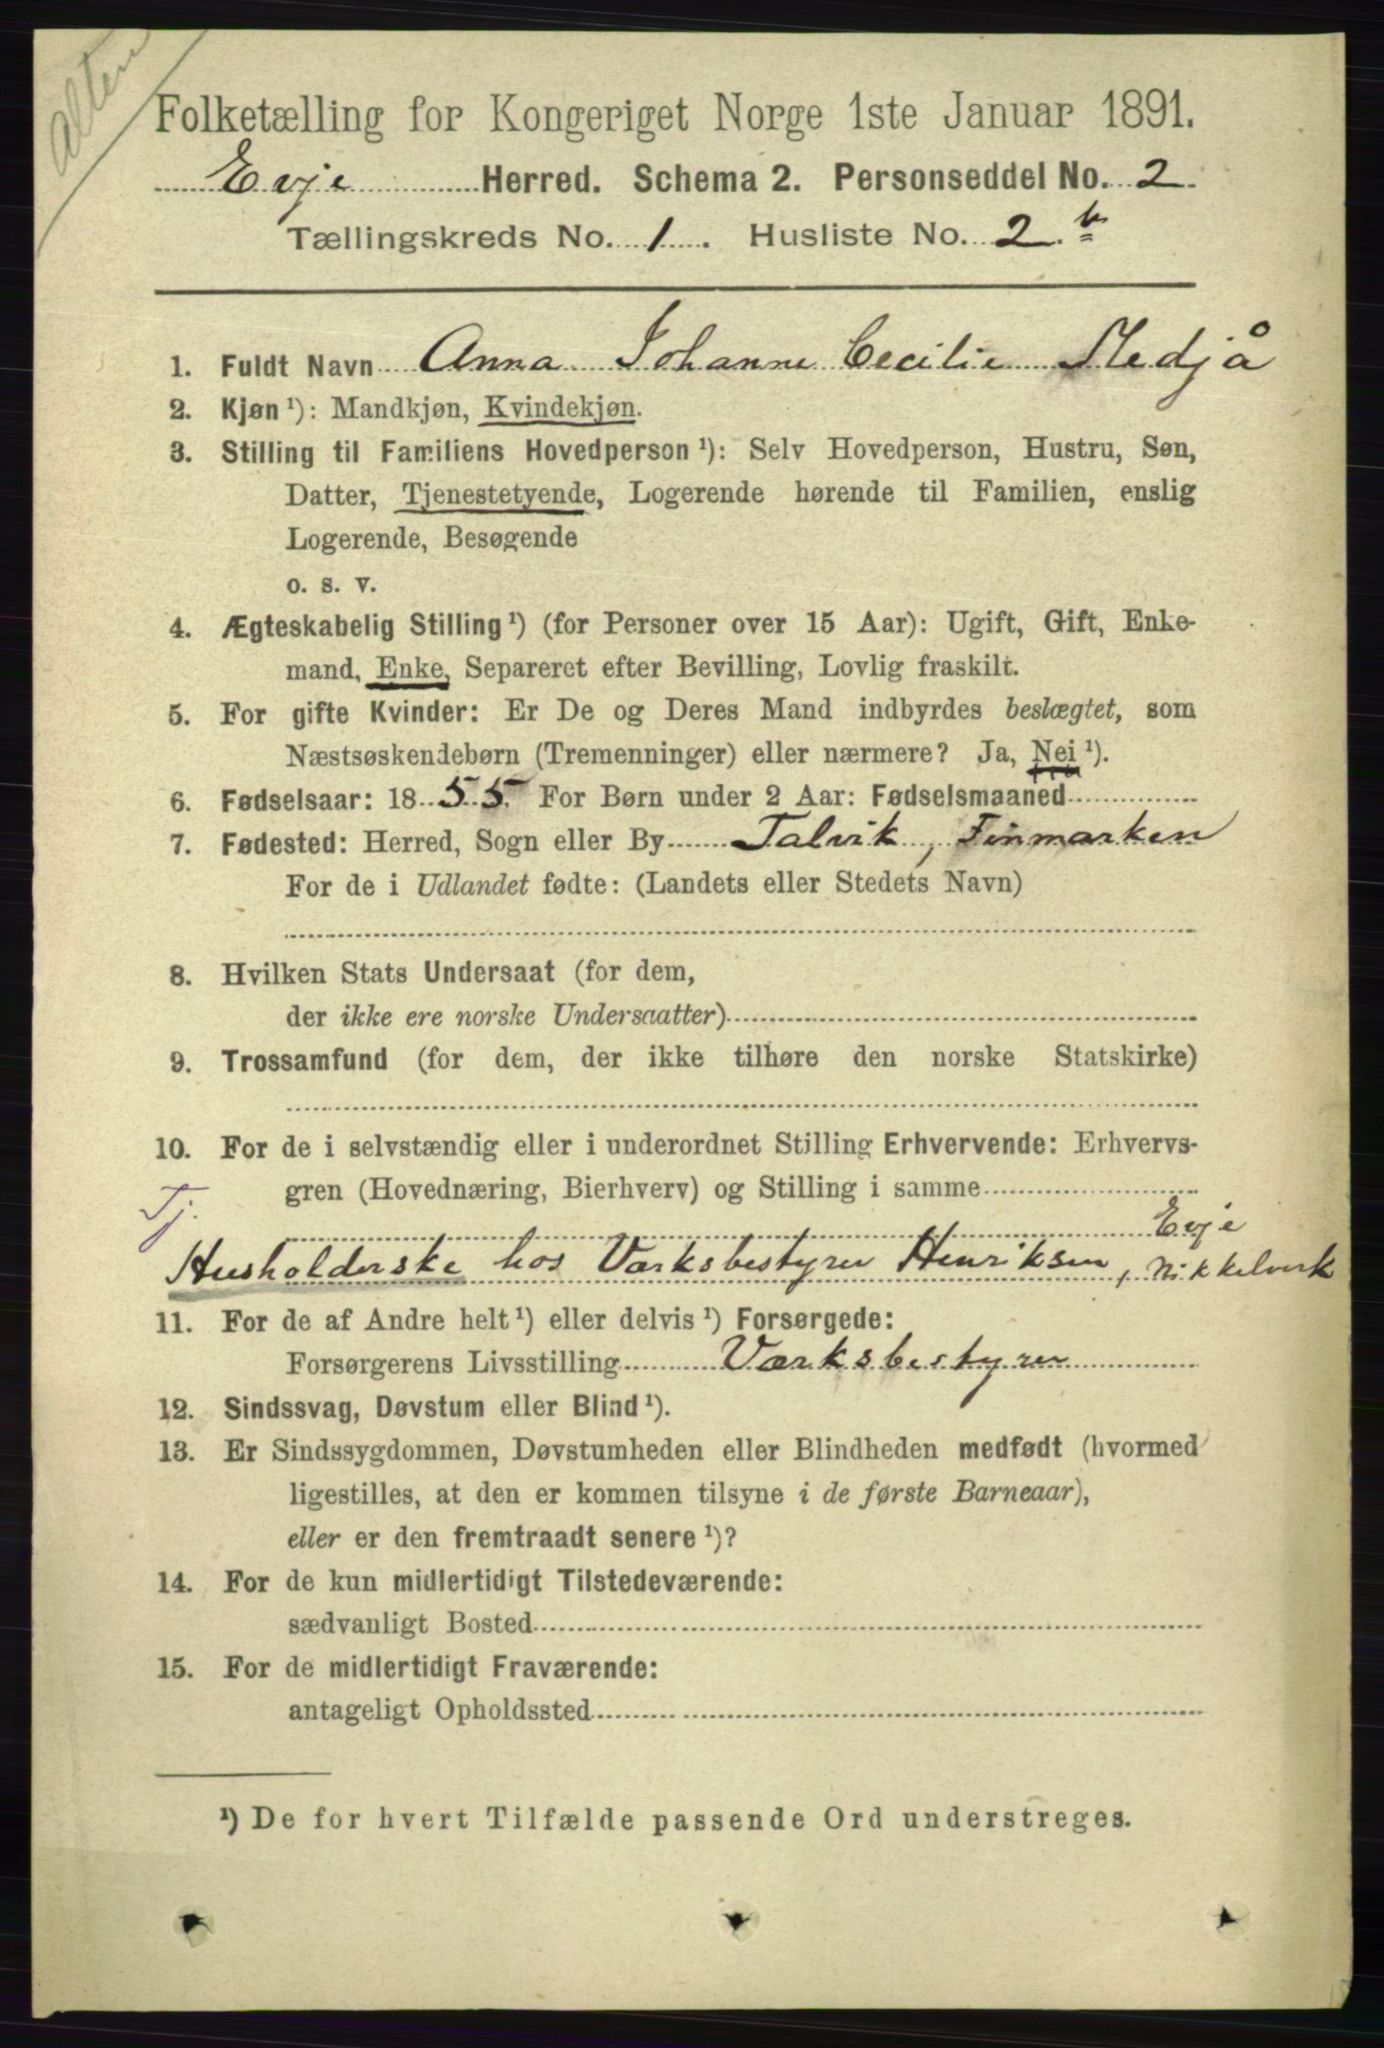 Alten
Folketælling for Kongeriget Norge 1ste Januar 1891.
Evje Herred. Schema 2. Personseddel No. 2.
Tællingskreds No. 1. Husliste No. 2.b
1. Fuldt Navn Anna Johanne Cecilie Stedjå
2. Kjøn ¹): Mandkjøn, Kvindekjøn.
3. Stilling til Familiens Hovedperson ¹): Selv Hovedperson, Hustru, Søn,
Datter, Tjenestetyende, Logerende hørende til Familien, enslig
Logerende, Besøgende
o. s. v.
4. Ægteskabelig Stilling ¹) (for Personer over 15 Aar): Ugift, Gift, Enke-
mand, Enke, Separeret efter Bevilling, Lovlig fraskilt.
5. For gifte Kvinder: Er De og Deres Mand indbyrdes beslægtet, som
Næstsøskendebørn (Tremenninger) eller nærmere? Ja, Nei ¹).
6. Fødselsaar: 1855. For Børn under 2 Aar: Fødselsmaaned
7. Fødested: Herred, Sogn eller By Talvik, Finmarken
For de i Udlandet fødte: (Landets eller Stedets Navn)
8. Hvilken Stats Undersaat (for dem,
der ikke ere norske Undersaatter)
9. Trossamfund (for dem, der ikke tilhøre den norske Statskirke)
10. For de i selvstændig eller i underordnet Stilling Erhvervende: Erhvervs-
gren (Hovednæring, Bierhverv) og Stilling i samme
Tj. Evje
Husholderske hos Værksbestyrer Henriksen, Nikkelverk
11. For de af Andre helt ¹) eller delvis ¹) Forsørgede:
Forsørgerens Livsstilling Værksbestyrer
12. Sindssvag, Døvstum eller Blind ¹).
13. Er Sindssygdommen, Døvstumheden eller Blindheden medfødt (hvormed
ligestilles, at den er kommen tilsyne i de første Barneaar),
eller er den fremtraadt senere ¹)?
14. For de kun midlertidigt Tilstedeværende:
sædvanligt Bosted
15. For de midlertidigt Fraværende:
antageligt Opholdssted
¹) De for hvert Tilfælde passende Ord understreges.